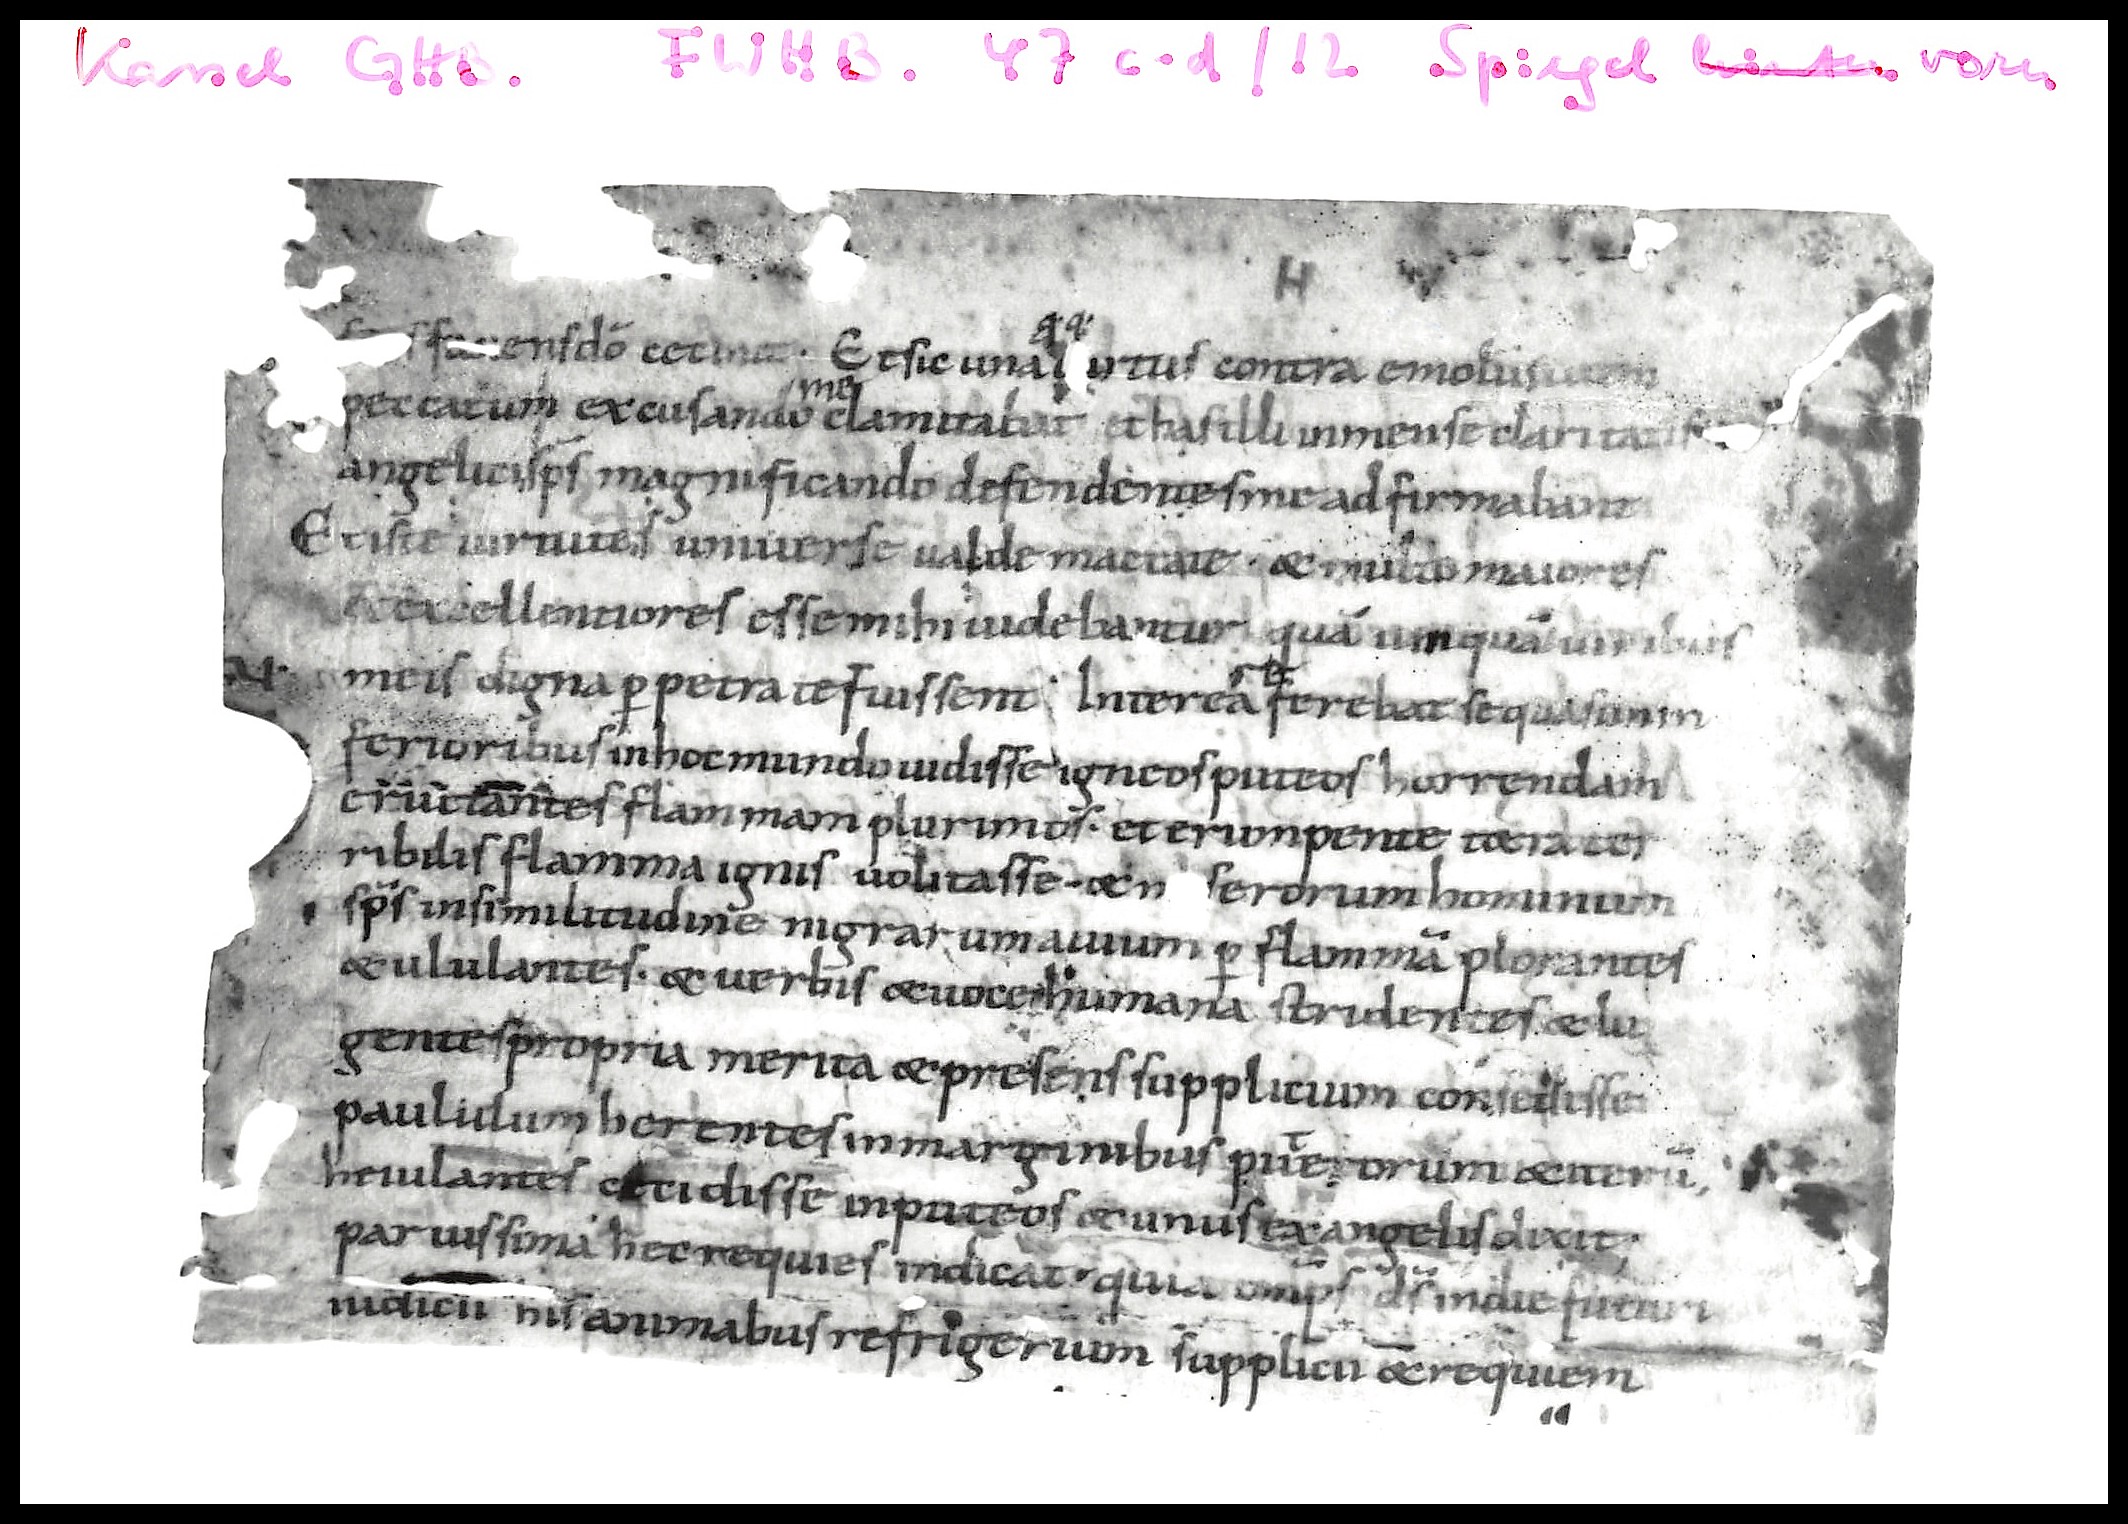 Kassel GHB. FWHB. 47 c-d/12 Spiegel hinten vorn
H
q·q·
ensdō cetina· Et sic una urtus contra emolus uum
me
peccatum excusando clamitabat et has illi inmense claritatis
angelici sp̄s magnificando defendentes me adfirmabant
Et iste uirtutes uniuerse ualde mactate · & multo maiores
& excellentiores esse mihi uidebantur quā umquā uiribus
meis digna ꝑpetrate fuissent · Interea ferebat se quasi in in
ferioribus in hoc mundo uidisse igneos puteos horrendam
eructantes flammam plurimos · et erumpente t&ra ter
ribilis flamma ignis uolitasse · & m serorum hominum
sp̄s in similitudine nigrarum auium ꝑ flammā plorantes
& ululantes · & uerbis & uoce humana stridentes & lu
gentes propria merita & presens supplicium consedisse
paululum herentes in marginibus puteorum & iterū
heiulantes cecidisse in puteos & unus ex angelis dixit
paruissima hec requies indicat quia omp̄s ds̄ in die futuri
iudicii his animabus refrigerium supplicii & requiem